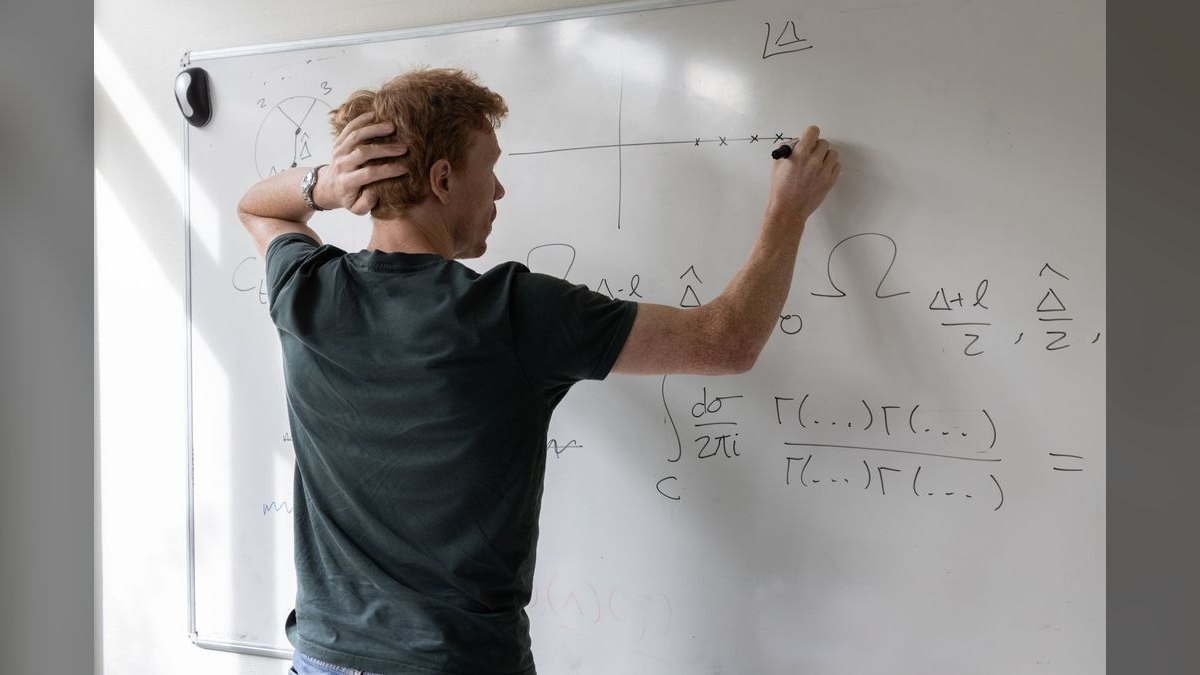 Δ
2 3
Δ̂
Ω Δ-ℓ Δ̂ Ω Δ+ℓ/2 , Δ̂/2 ,
∫_C dσ/2πi Γ(...)Γ(....)/Γ(...)Γ(....) =